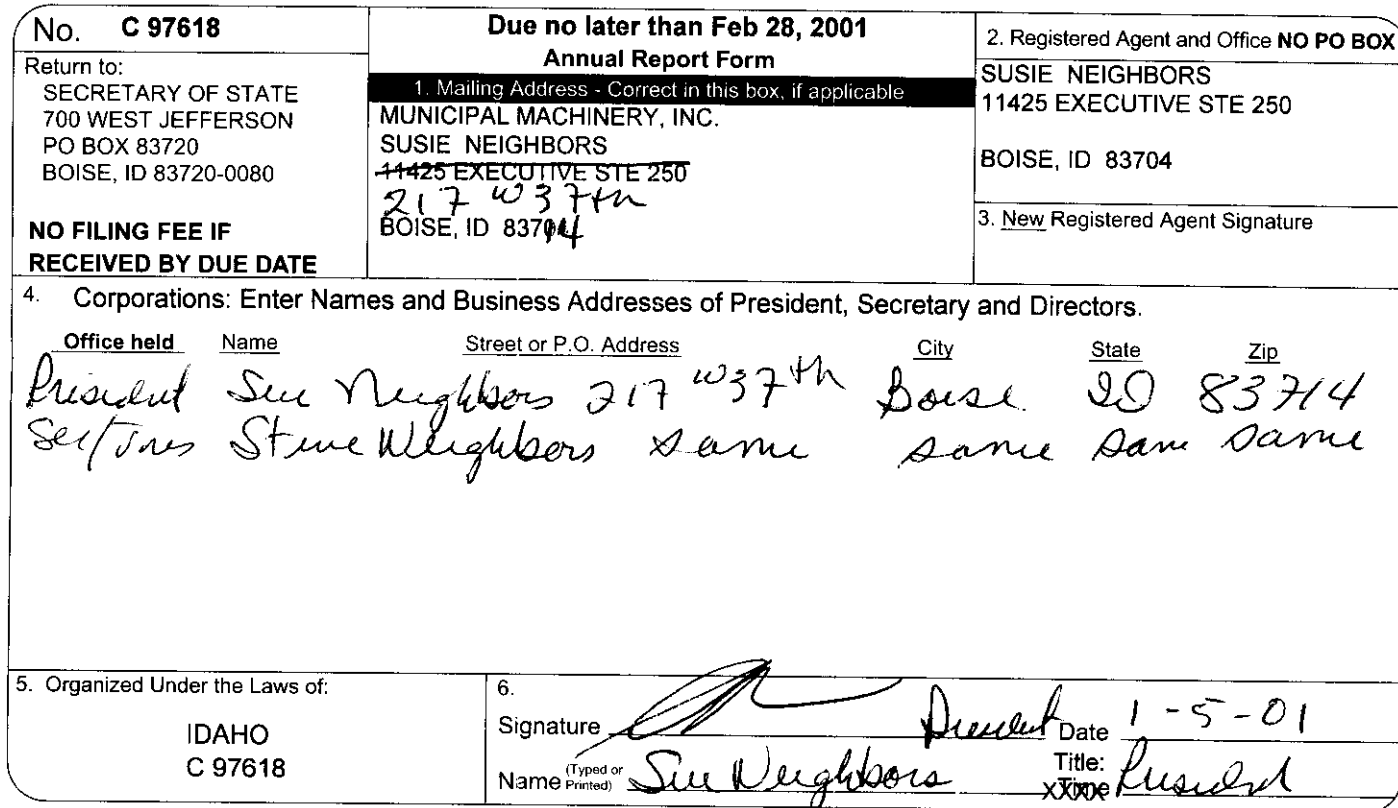 No. C 97618
Return to:
SECRETARY OF STATE
700 WEST JEFFERSON
PO BOX 83720
BOISE, ID 83720-0080
NO FILING FEE IF
RECEIVED BY DUE DATE
Due no later than Feb 28, 2001
Annual Report Form
1. Mailing Address - Correct in this box, if applicable
MUNICIPAL MACHINERY, INC.
SUSIE NEIGHBORS
11425 EXECUTIVE STE 250
217 W 37th
BOISE, ID 83714
2. Registered Agent and Office NO PO BOX
SUSIE NEIGHBORS
11425 EXECUTIVE STE 250
BOISE, ID 83704
3. New Registered Agent Signature
4. Corporations: Enter Names and Business Addresses of President, Secretary and Directors.
Office held Name Street or P.O. Address City State Zip
President Sue Neighbors 217 W 37th Boise ID 83714
Sec/Tres Steve Neighbors same same same same
5. Organized Under the Laws of:
IDAHO
C 97618
6.
Signature President Date 1-5-01
Name (Typed or Printed) Sue Neighbors Title: President